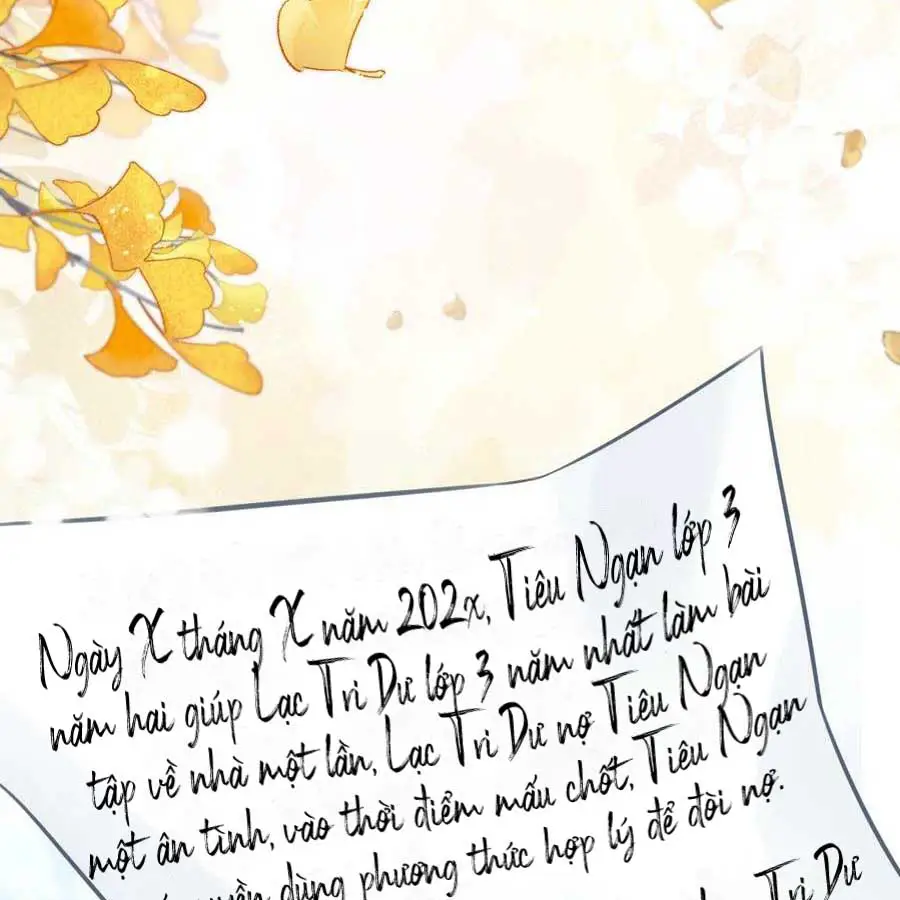 Ngày X tháng X năm 202x, Tiêu Ngạn lớp 3
năm hai giúp Lạc Tri Dư lớp 3 năm nhất làm bài
tập về nhà một lần, Lạc Tri Dư nợ Tiêu Ngạn
một ân tình, vào thời điểm mấu chốt, Tiêu Ngạn
dùng phương thức hợp lý để đòi nợ.
Tri Dư